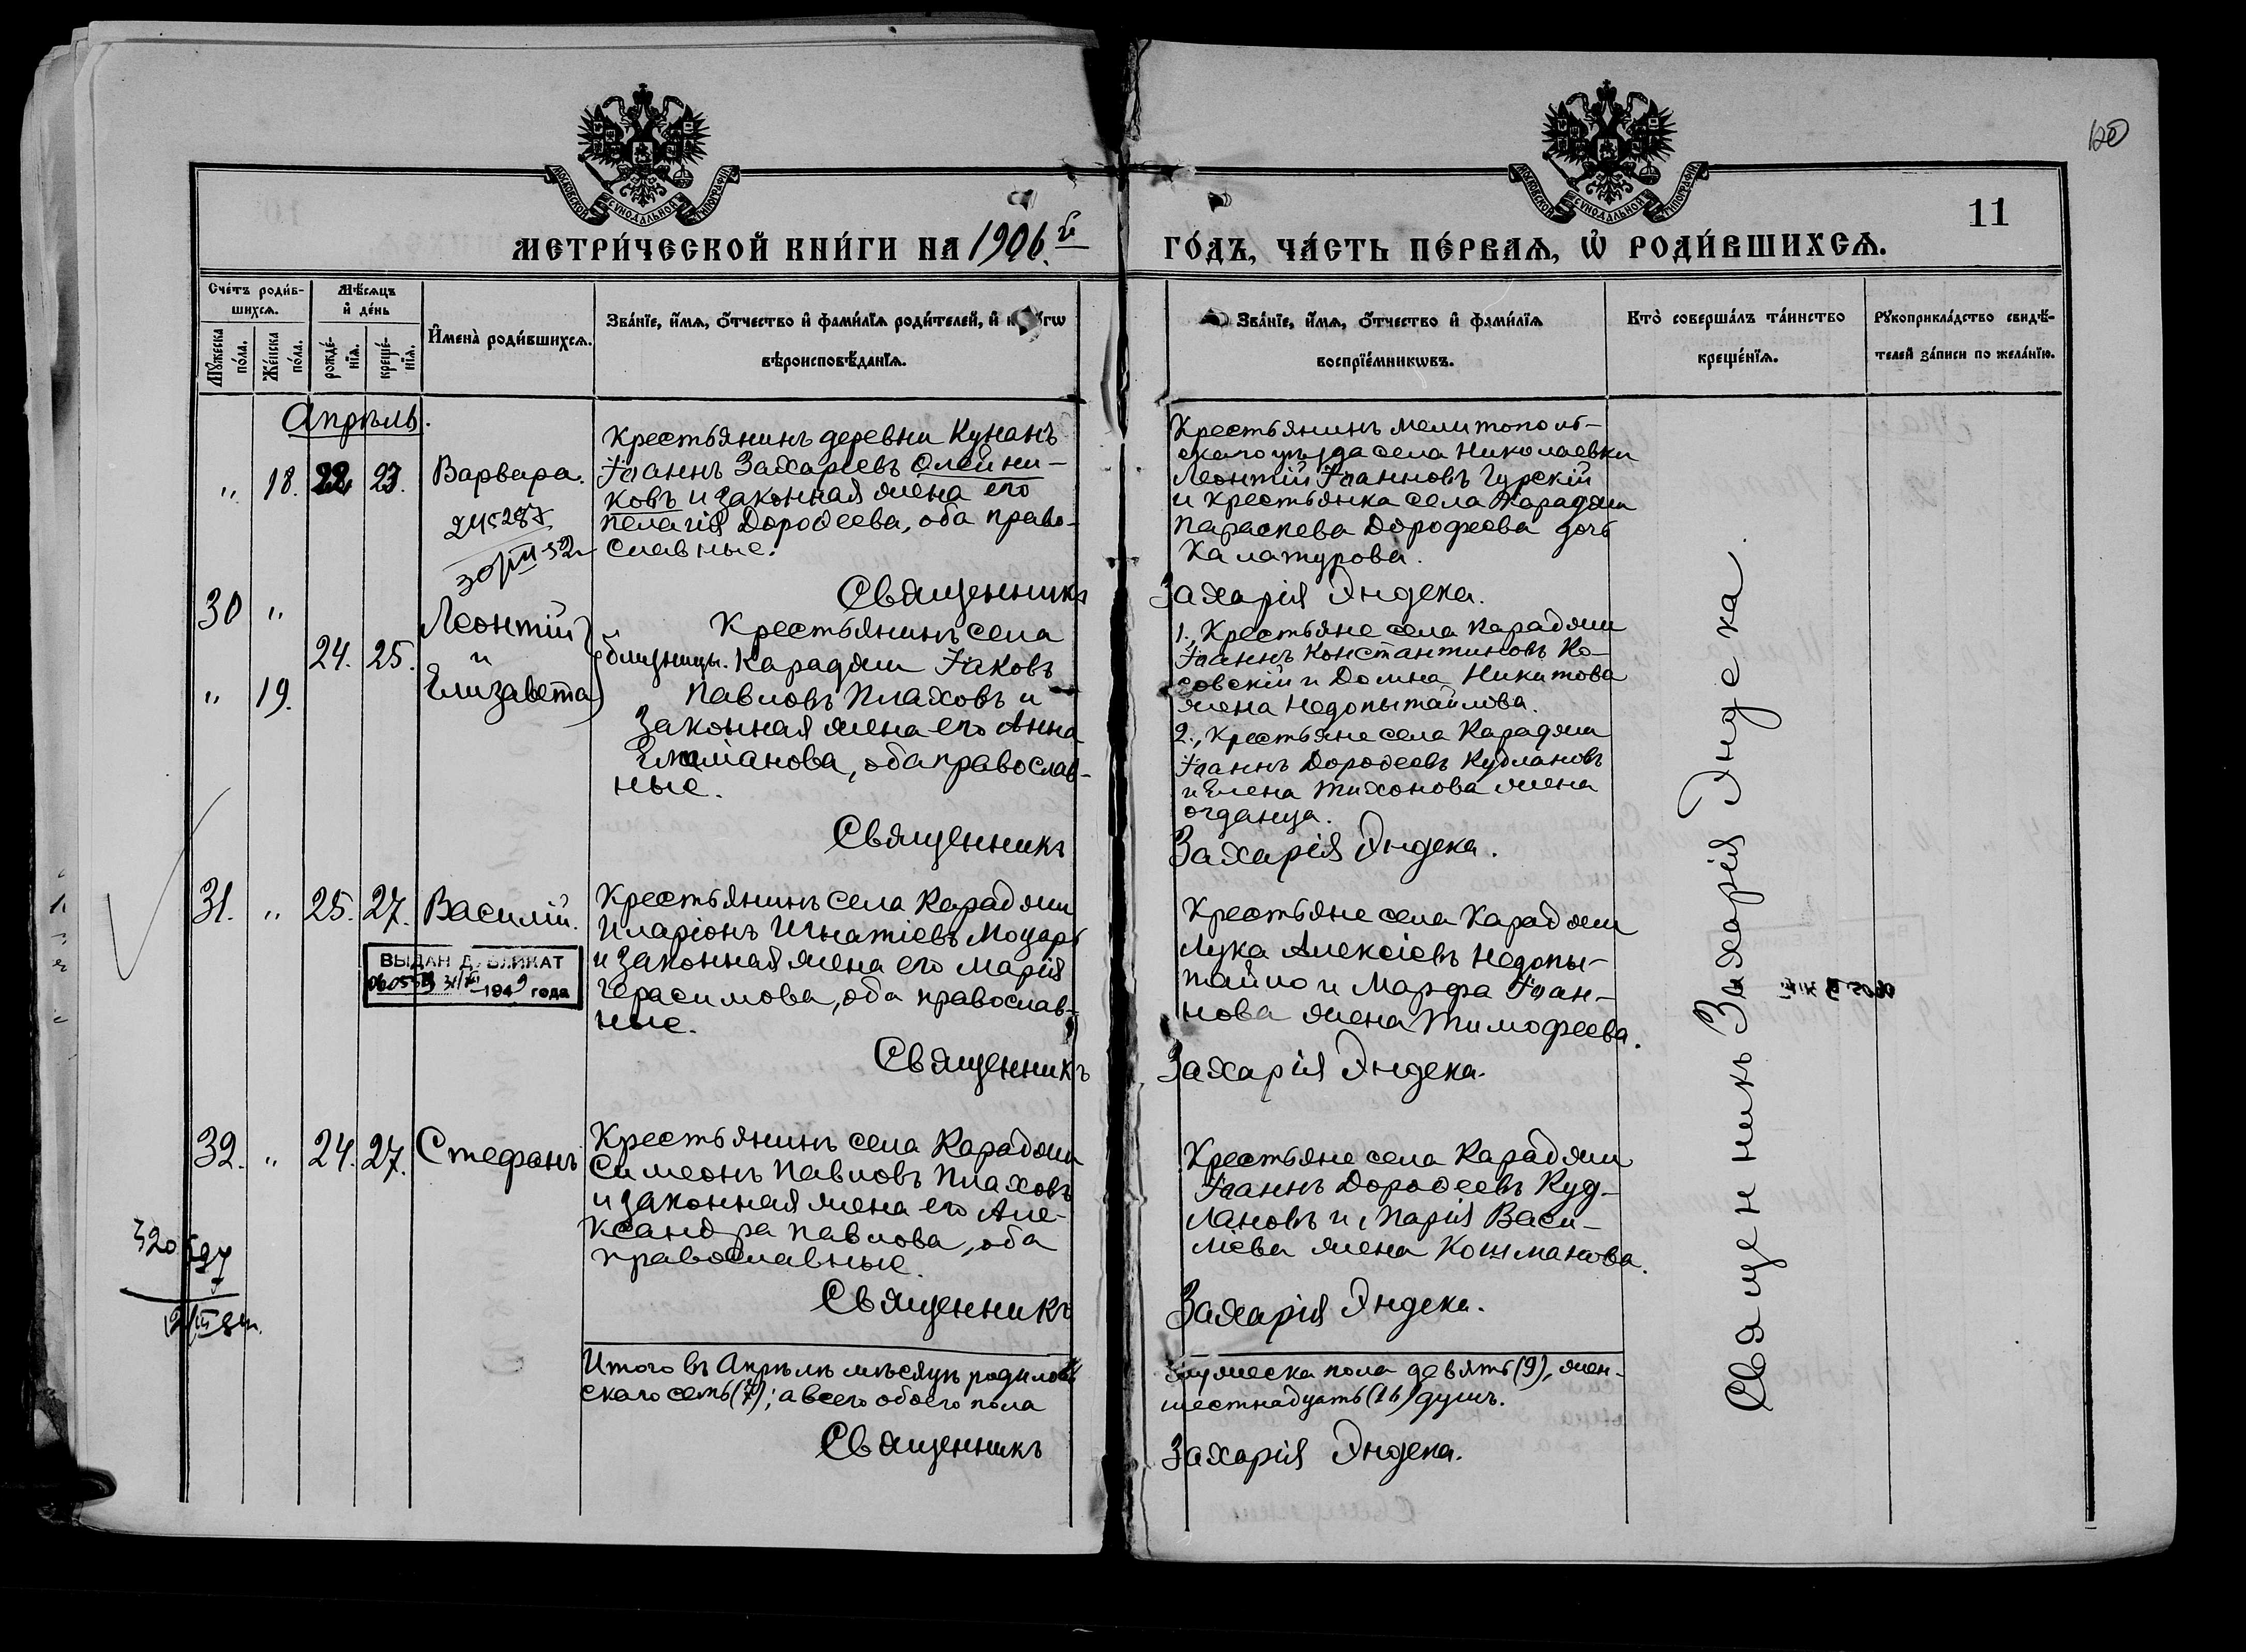 120
11
МОСКОВСКОЙ СѴНОДАЛЬНОЙ ТИПОГРАФІИ
МОСКОВСКОЙ СѴНОДАЛЬНОЙ ТИПОГРАФІИ
МЕТРИ́ЧЕСКОЙ КНИ́ГИ НА 1906 й
ГО́ДЪ, ЧА́СТЬ ПЕ́РВАѦ, Ѽ РОДИ́ВШИХСѦ.
Сче́тъ роди́в-
шихсѧ.
Мꙋ́жеска
по́ла.
Же́нска
по́ла.
Мѣ́сѧцъ
и҆ де́нь
рожде́-
нїѧ.
креще́-
нїѧ.
И҆мена̀ роди́вшихсѧ.
Зва́нїе, и҆́мѧ, ѻ҆́тчество и҆ фами́лїѧ роди́телей, и҆
вѣроисповѣ́данїѧ.
Зва́нїе, и҆́мѧ, ѻ҆́тчество и҆ фами́лїѧ
воспрїе́мникѡвъ.
Кто̀ соверша́лъ та́инство
креще́нїѧ.
Рꙋкоприкла́дство свидѣ́-
телей за́писи по жела́нїю.
Апрѣль.
" 18. 22 23. Варвара.
Крестьянинъ деревни Кунанъ
Іоаннъ Захаріевъ Олейни-
ковъ и законная жена его
Пелагія Дороѳеева, оба право-
славные.
Священникъ
Крестьянинъ Мелитополь-
скаго уѣзда села Николаевки
Леонтій Іоанновъ Гурскій
и крестьянка села Карадж
Параскева Дорофеева дочь
Калатурова.
Захарія Яндека.
30 "
24. 25.
" 19.
Леонтій
и
Елизавета
близнецы.
Крестьянинъ села
Караджи Іаковъ
Павловъ Плаховъ и
законная жена его Анна
Емиліанова, оба православ-
ные.
Священникъ
1., Крестьяне села Караджи
Іоаннъ Константиновъ Ко-
совскій и Домна Никитова
жена Недопытайлова.
2., Крестьяне села Караджи
Іоаннъ Дороѳеевъ Кудлановъ
и Елена Тихонова жена
Захарія Яндека.
31. " 25. 27. Василій.
ВЫДАН ДУБЛИКАТ
1949 года
Крестьянинъ села Караджи
Иларіонъ Игнатіевъ Моцарь
и законная жена его Марія
Герасимова, оба православ-
ные.
Священникъ
Крестьяне села Караджи
Лука Алексіевъ Недопы-
тайло и Марфа Іоан-
нова жена Тимофеева.
Захарія Яндека.
32. " 24. 27. Стефанъ
Крестьянинъ села Караджи
Симеонъ Павловъ Плаховъ
и законная жена его Але-
ксандра Павлова, оба
православные.
Священникъ
Крестьяне села Караджи
Іоаннъ Дороѳеевъ Куд-
лановъ и Марія Васи-
ліева жена Кошманова.
Захарія Яндека.
Итого въ Апрѣлѣ мѣсяцѣ родилось
мужеска пола девять (9), жен-
скаго семь (7); а всего обоего пола
шестнадцать (16) душъ.
Священникъ
Захарія Яндека.
Священникъ Захарія Яндека.